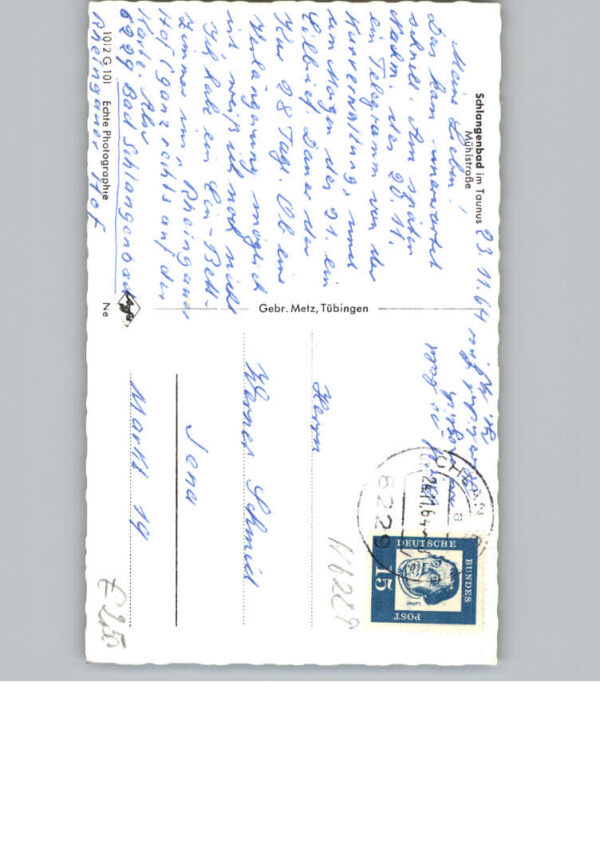 Schlangenbad im Taunus
Mühlstraße
23.11.64
Meine Lieben!
Das kam unerwartet
schnell. Am späten
Nachm. des 20.11.
ein Telegramm von der
Kurverwaltung, und
am Morgen des 21. ein
Eilbrief. Dauer der
Kur 28 Tage. Ob eine
Verlängerung möglich
ist, weiß ich noch nicht
Ich habe ein Ein-Bett-
Zimmer im „Rheingauer
Hof" (ganz rechts auf der
Karte. Abs.
6229 Bad Schlangenbad
Rheingauer Hof
1012 G 101 Echte Photographie
Ne
Agfa
Gebr. Metz, Tübingen
6229
24.11.64
a
DEUTSCHE
BUNDES
POST
15
Luther
Herrn
Werner Schmid
Jena
Markt 19